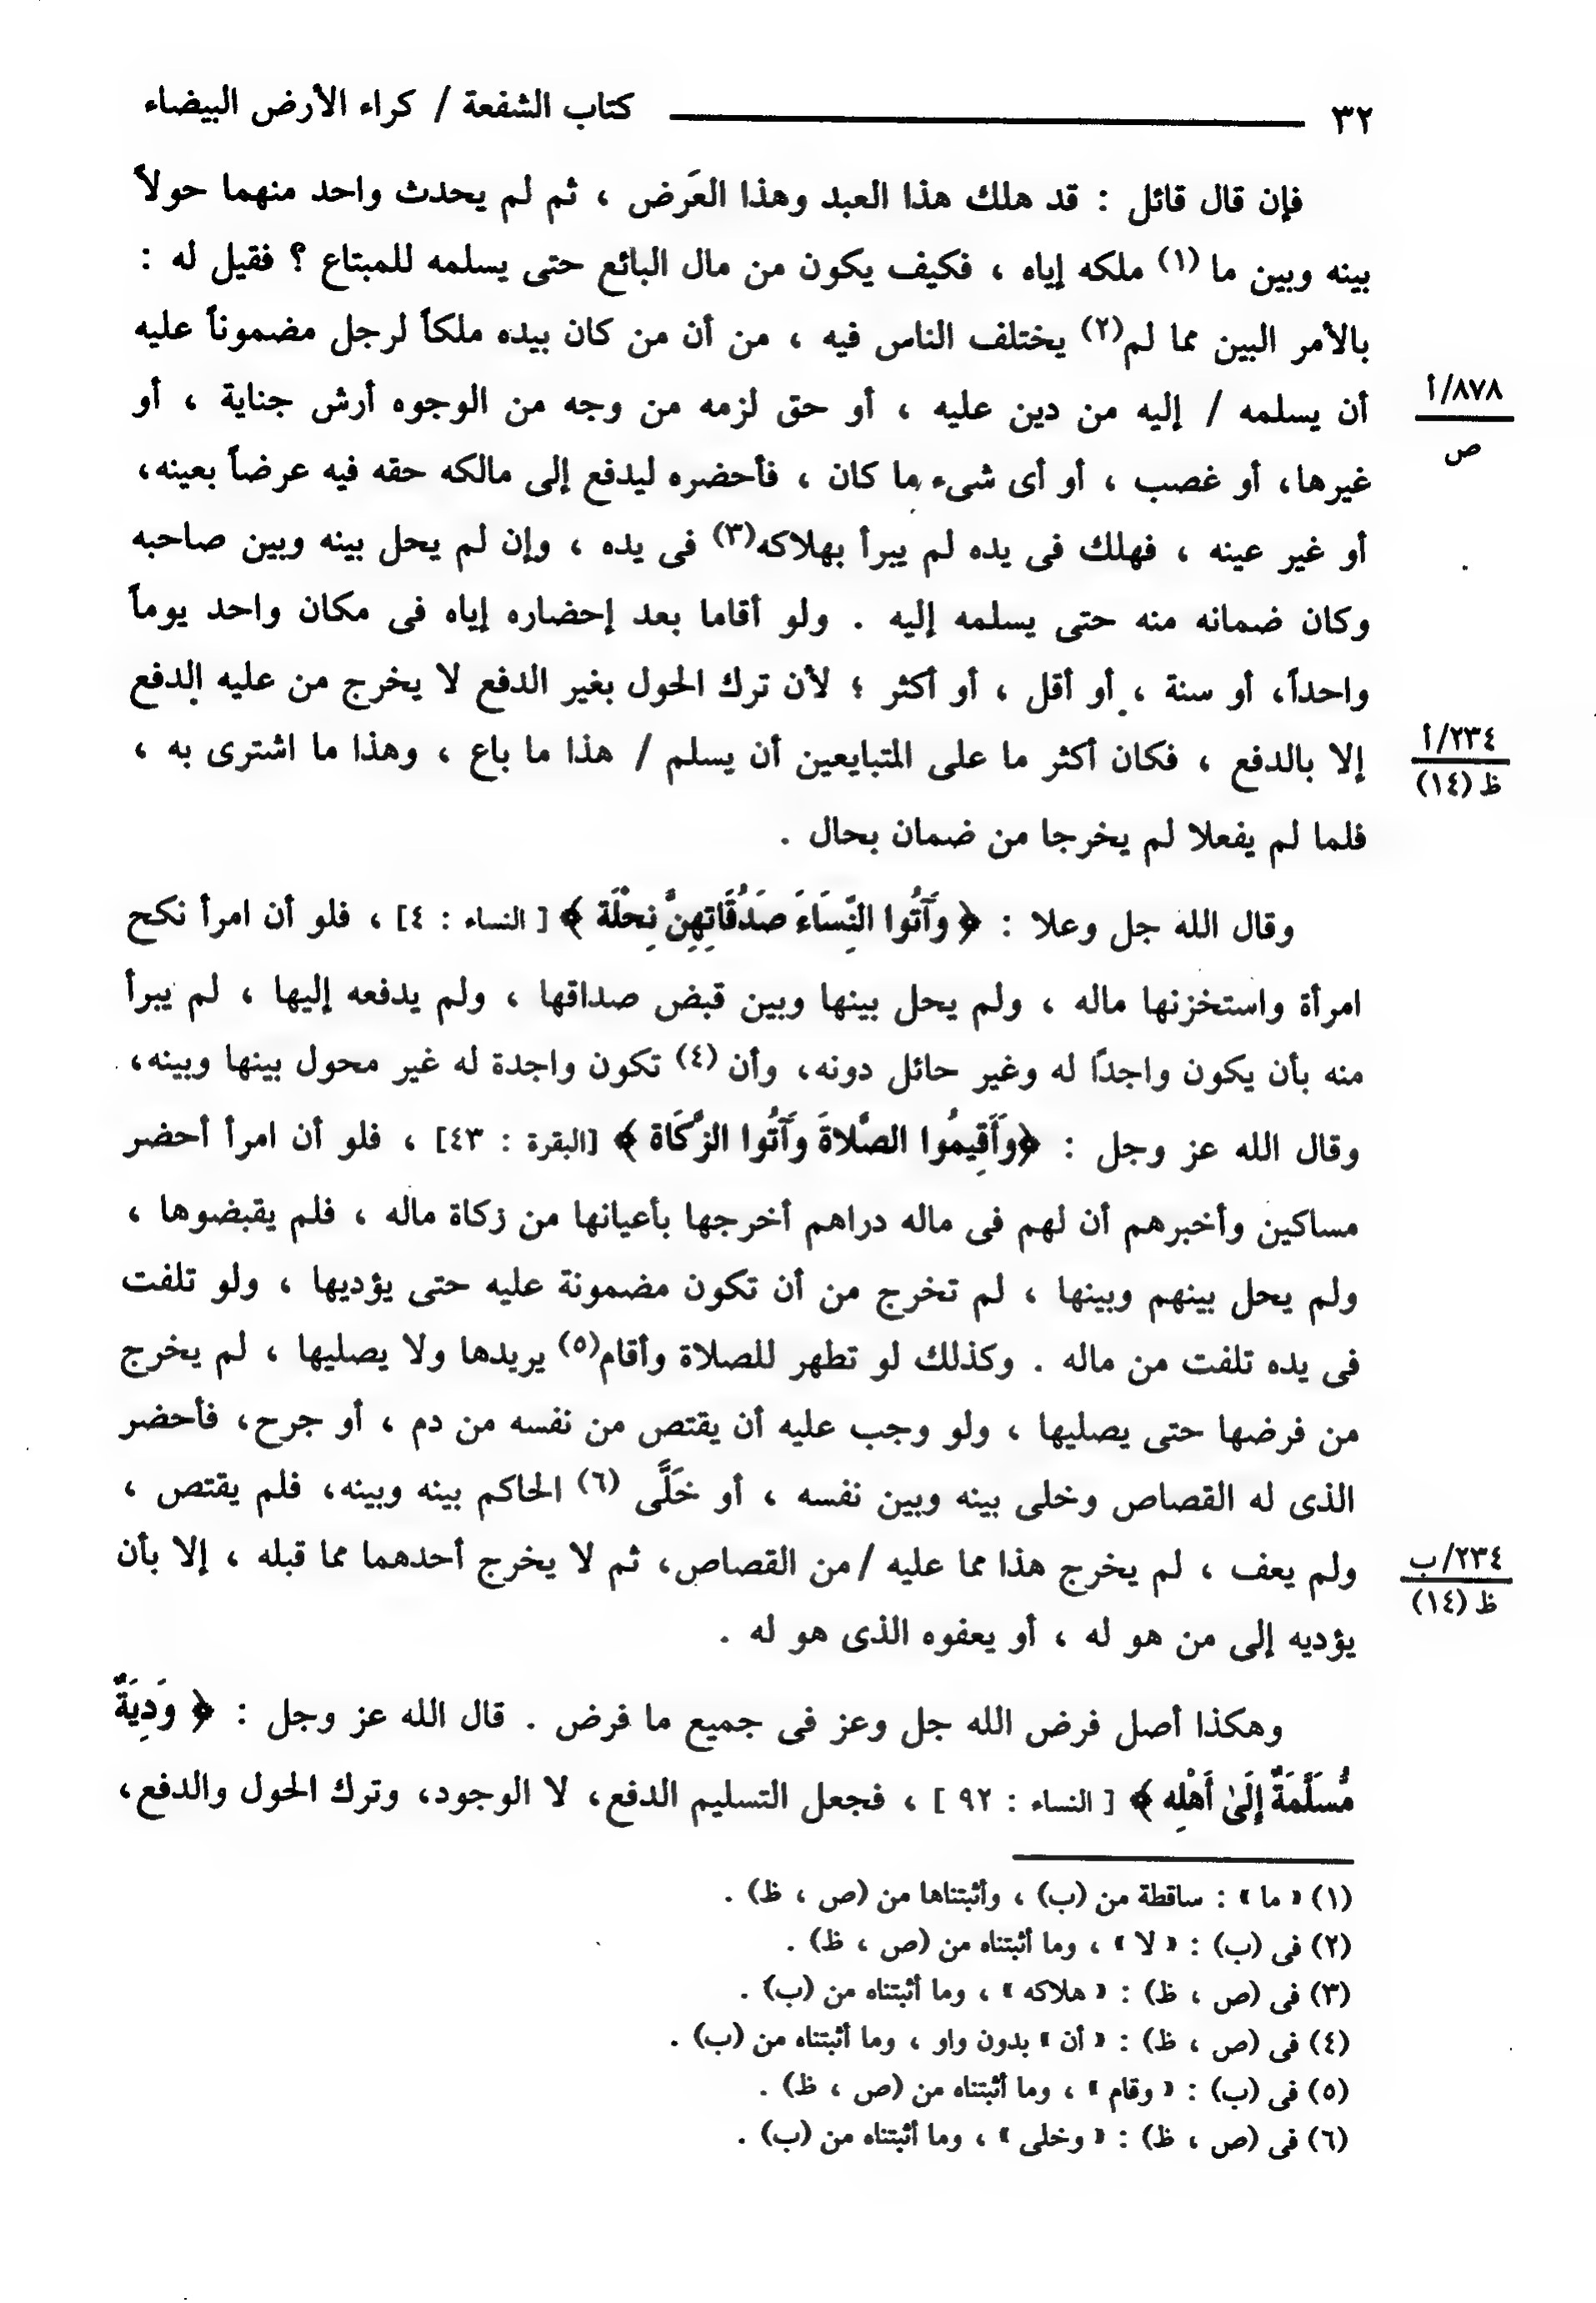 ٣٢ كتاب الشفعة / كراء الأرض البيضاء
فإن قال قائل : قد هلك هذا العبد وهذا العَرض ، ثم لم يحدث واحد منهما حولاً
بينه وبين ما (١) ملكه إياه ، فكيف يكون من مال البائع حتى يسلمه للمبتاع ؟ فقيل له :
بالأمر البين مما لم(٢) يختلف الناس فيه ، من أن من كان بيده ملكاً لرجل مضموناً عليه
أن يسلمه / إليه من دين عليه ، أو حق لزمه من وجه من الوجوه أرش جناية ، أو
٨٧٨/أ
ص
غيرها، أو غصب ، أو أى شىء ما كان ، فأحضره ليدفع إلى مالكه حقه فيه عرضاً بعينه،
أو غير عينه ، فهلك فى يده لم يبرأ بهلاكه(٣) فى يده ، وإن لم يحل بينه وبين صاحبه
وكان ضمانه منه حتى يسلمه إليه . ولو أقاما بعد إحضاره إياه فى مكان واحد يوماً
واحداً، أو سنة ، أو أقل ، أو أكثر ؛ لأن ترك الحول بغير الدفع لا يخرج من عليه الدفع
إلا بالدفع ، فكان أكثر ما على المتبايعين أن يسلم / هذا ما باع ، وهذا ما اشترى به ،
٢٣٤/أ
ظ (١٤)
فلما لم يفعلا لم يخرجا من ضمان بحال .
وقال الله جل وعلا : ﴿ وَآتُوا النِّسَاءَ صَدُقَاتِهِنَّ نِحْلَة ﴾ [ النساء : ٤] ، فلو أن امرأ نكح
امرأة واستخزنها ماله ، ولم يحل بينها وبين قبض صداقها ، ولم يدفعه إليها ، لم يبرأ
منه بأن يكون واجدًا له وغير حائل دونه، وأن (٤) تكون واجدة له غير محول بينها وبينه،
وقال الله عز وجل : ﴿وَأَقِيمُوا الصَّلاةَ وَآتُوا الزَّكَاة ﴾ [البقرة : ٤٣] ، فلو أن امرأ أحضر
مساكين وأخبرهم أن لهم فى ماله دراهم أخرجها بأعيانها من زكاة ماله ، فلم يقبضوها ،
ولم يحل بينهم وبينها ، لم تخرج من أن تكون مضمونة عليه حتى يؤديها ، ولو تلفت
فى يده تلفت من ماله . وكذلك لو تطهر للصلاة وأقام(٥) يريدها ولا يصليها ، لم يخرج
من فرضها حتى يصليها ، ولو وجب عليه أن يقتص من نفسه من دم ، أو جرح، فأحضر
الذى له القصاص وخلى بينه وبين نفسه ، أو خَلَّى (٦) الحاكم بينه وبينه، فلم يقتص ،
ولم يعف ، لم يخرج هذا مما عليه / من القصاص، ثم لا يخرج أحدهما مما قبله ، إلا بأن
٢٣٤/ب
ظ (١٤)
يؤديه إلى من هو له ، أو يعفوه الذى هو له .
وهكذا أصل فرض الله جل وعز فى جميع ما فرض . قال الله عز وجل : ﴿ وَدِيَةٌ
مُّسَلَّمَةٌ إِلَىٰ أَهْلِه ﴾ [ النساء : ٩٢ ] ، فجعل التسليم الدفع، لا الوجود، وترك الحول والدفع،
(١) « ما » : ساقطة من (ب) ، وأثبتناها من (ص ، ظ) .
(٢) فى (ب) : « لا » ، وما أثبتناه من (ص ، ظ) .
(٣) فى (ص ، ظ) : « هلاكه » ، وما أثبتناه من (ب) .
(٤) فى (ص ، ظ) : « أن » بدون واو ، وما أثبتناه من (ب) .
(٥) فى (ب) : « وقام » ، وما أثبتناه من (ص ، ظ) .
(٦) فى (ص ، ظ) : « وخلى » ، وما أثبتناه من (ب) .